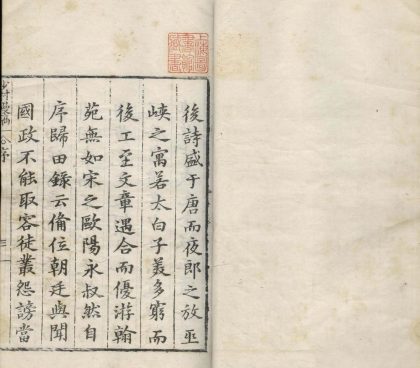 後詩盛于唐而夜郎之放巫
峽之寓若太白子美多窮而
後工至文章遇合而優游翰
苑無如宋之歐陽永叔然自
序歸田錄云俻位朝廷與聞
國政不能取容徒叢怨謗當